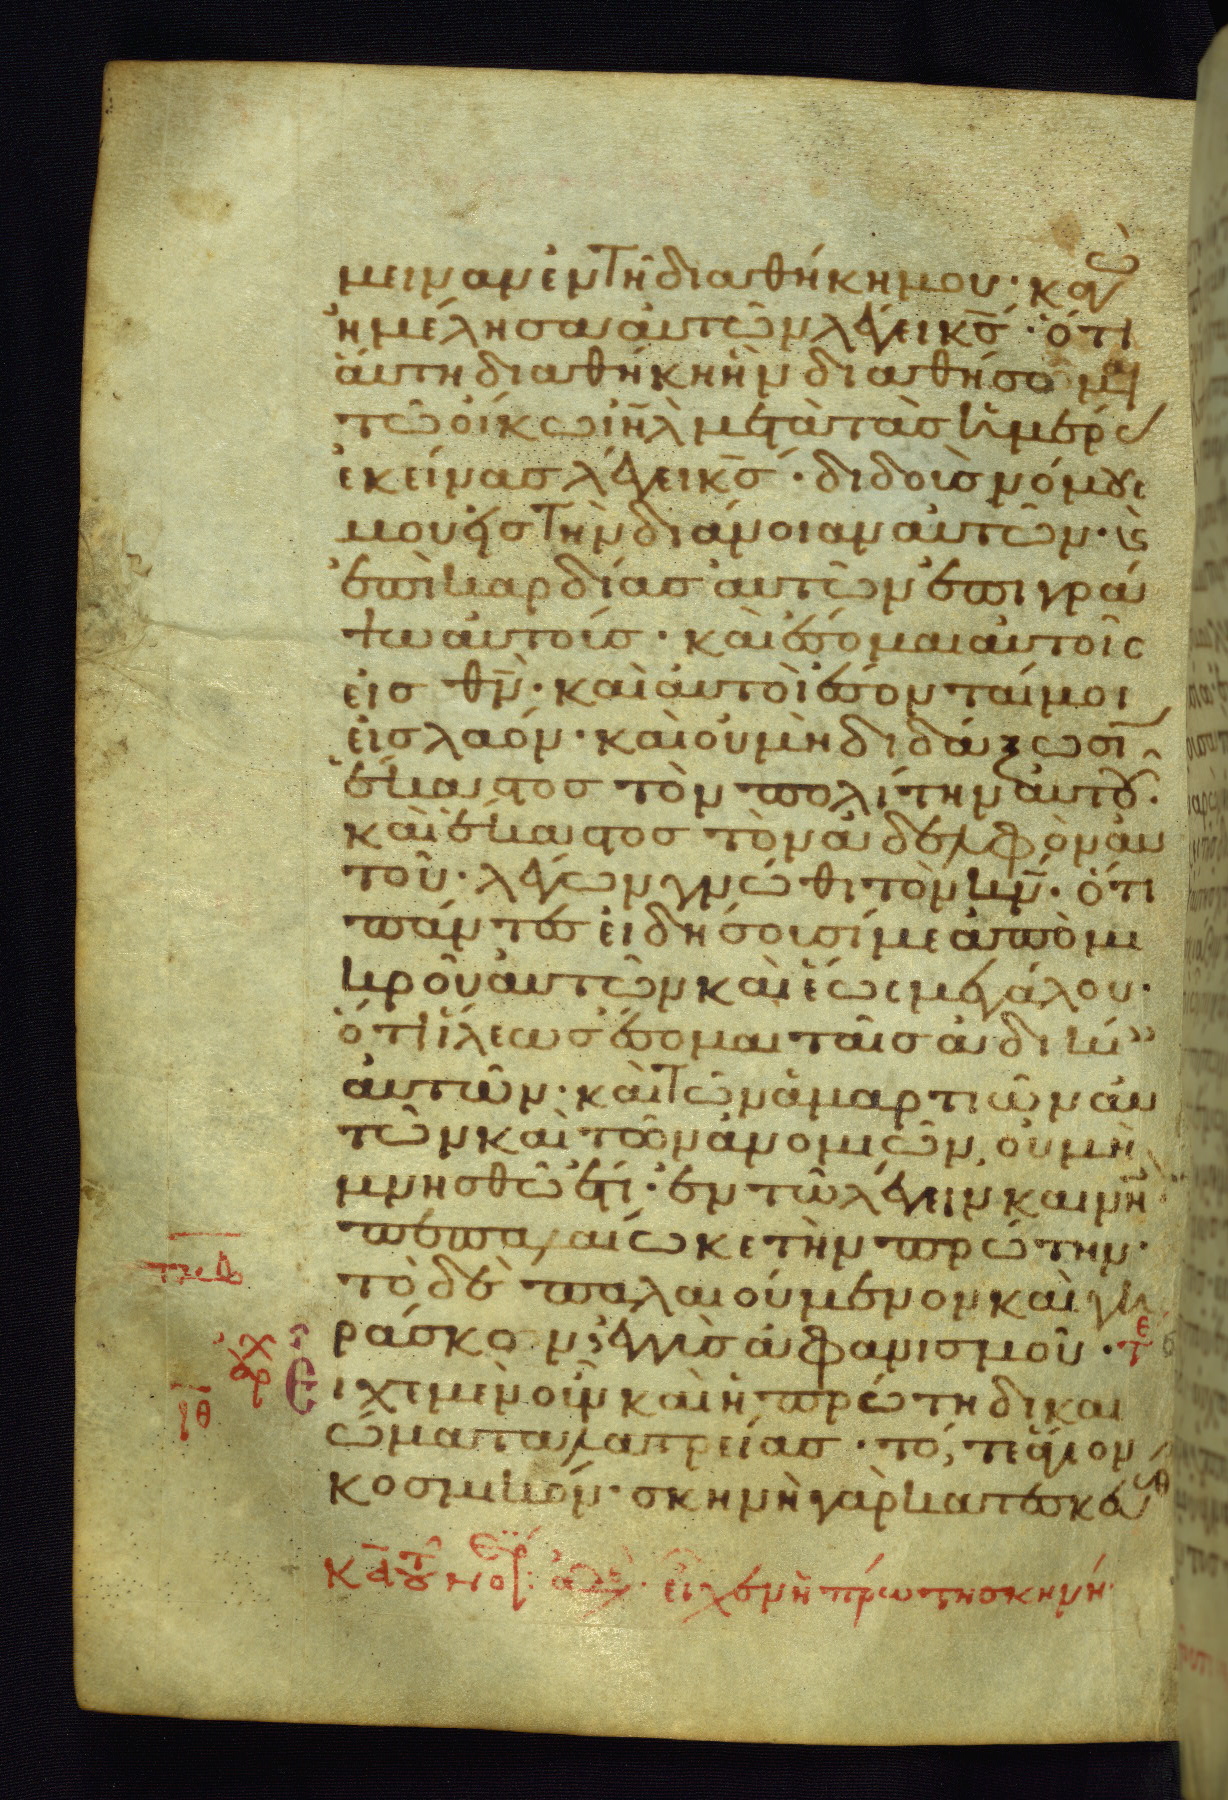 μειναν ἐν τῆ διαθήκη μου· καγὼ
ἠμέλησα αὐτῶν λέγει κ̅ς̅· ὅτι
ἁύτη διαθήκη ἣν διαθήσομαι
τῶ οἴκω ι̅η̅λ̅ μετὰ τὰσ ἡμέρας
ἐκείνασ λέγει κ̅ς̅· διδοὺσ νόμους
μου εἰσ τὴν διάνοιαν αὐτῶν· ϗ
ἐπὶ καρδίασ αὐτῶν ἐπιγρά
ψω αὐτούσ· καὶ ἔσομαι αὐτοῖς
εἰσ θ̅ν̅· καὶ αὐτοὶ ἔσονταί μοι
εἰσ λαόν· καὶ οὐ μὴ διδάξωσιν
ἕκαστος τὸν πολίτην αὐτοῦ·
καὶ ἕκαστος τὸν ἀδελφὸν αὐ
τοῦ· λέγων γνῶθι τὸν κ̅ν̅· ὅτι
πάντεσ εἰδήσουσί με ἀπὸ μι
κροῦ αὐτῶν καὶ ἕως μεγάλου·
ὅτι ἵλεωσ ἔσομαι ταῖσ ἀδικίαις
αὐτῶν· καὶ τῶν ἁμαρτιῶν αὐ
τῶν καὶ τῶν ἀνομιῶν οὐ μὴ
μνησθῶ ἔτι· ἐν τῶ λέγειν καινὴν
πεπαλαίωκε τὴν πρώτην·
τὸ δὲ παλαιούμενον καὶ γη
ράσκον ἐγγὺσ ἀφανισμοῦ· τε
Εἶχε μὲν οὖν καὶ ἡ πρώτη δικαι
ώματα λατρείασ· τό, τε ἅγιον
κοσμικόν· σκηνὴ γὰρ κατεσκευ
εἶχεν ἡ πρώτη σκηνή·